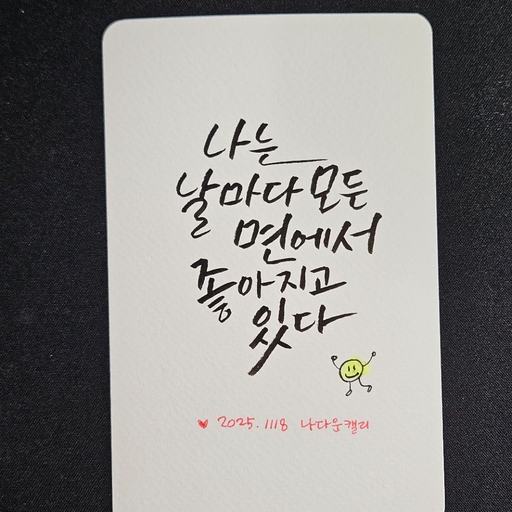 나는
날마다 모든
면에서
좋아지고
있다
♥ 2025.1118 나다운캘리